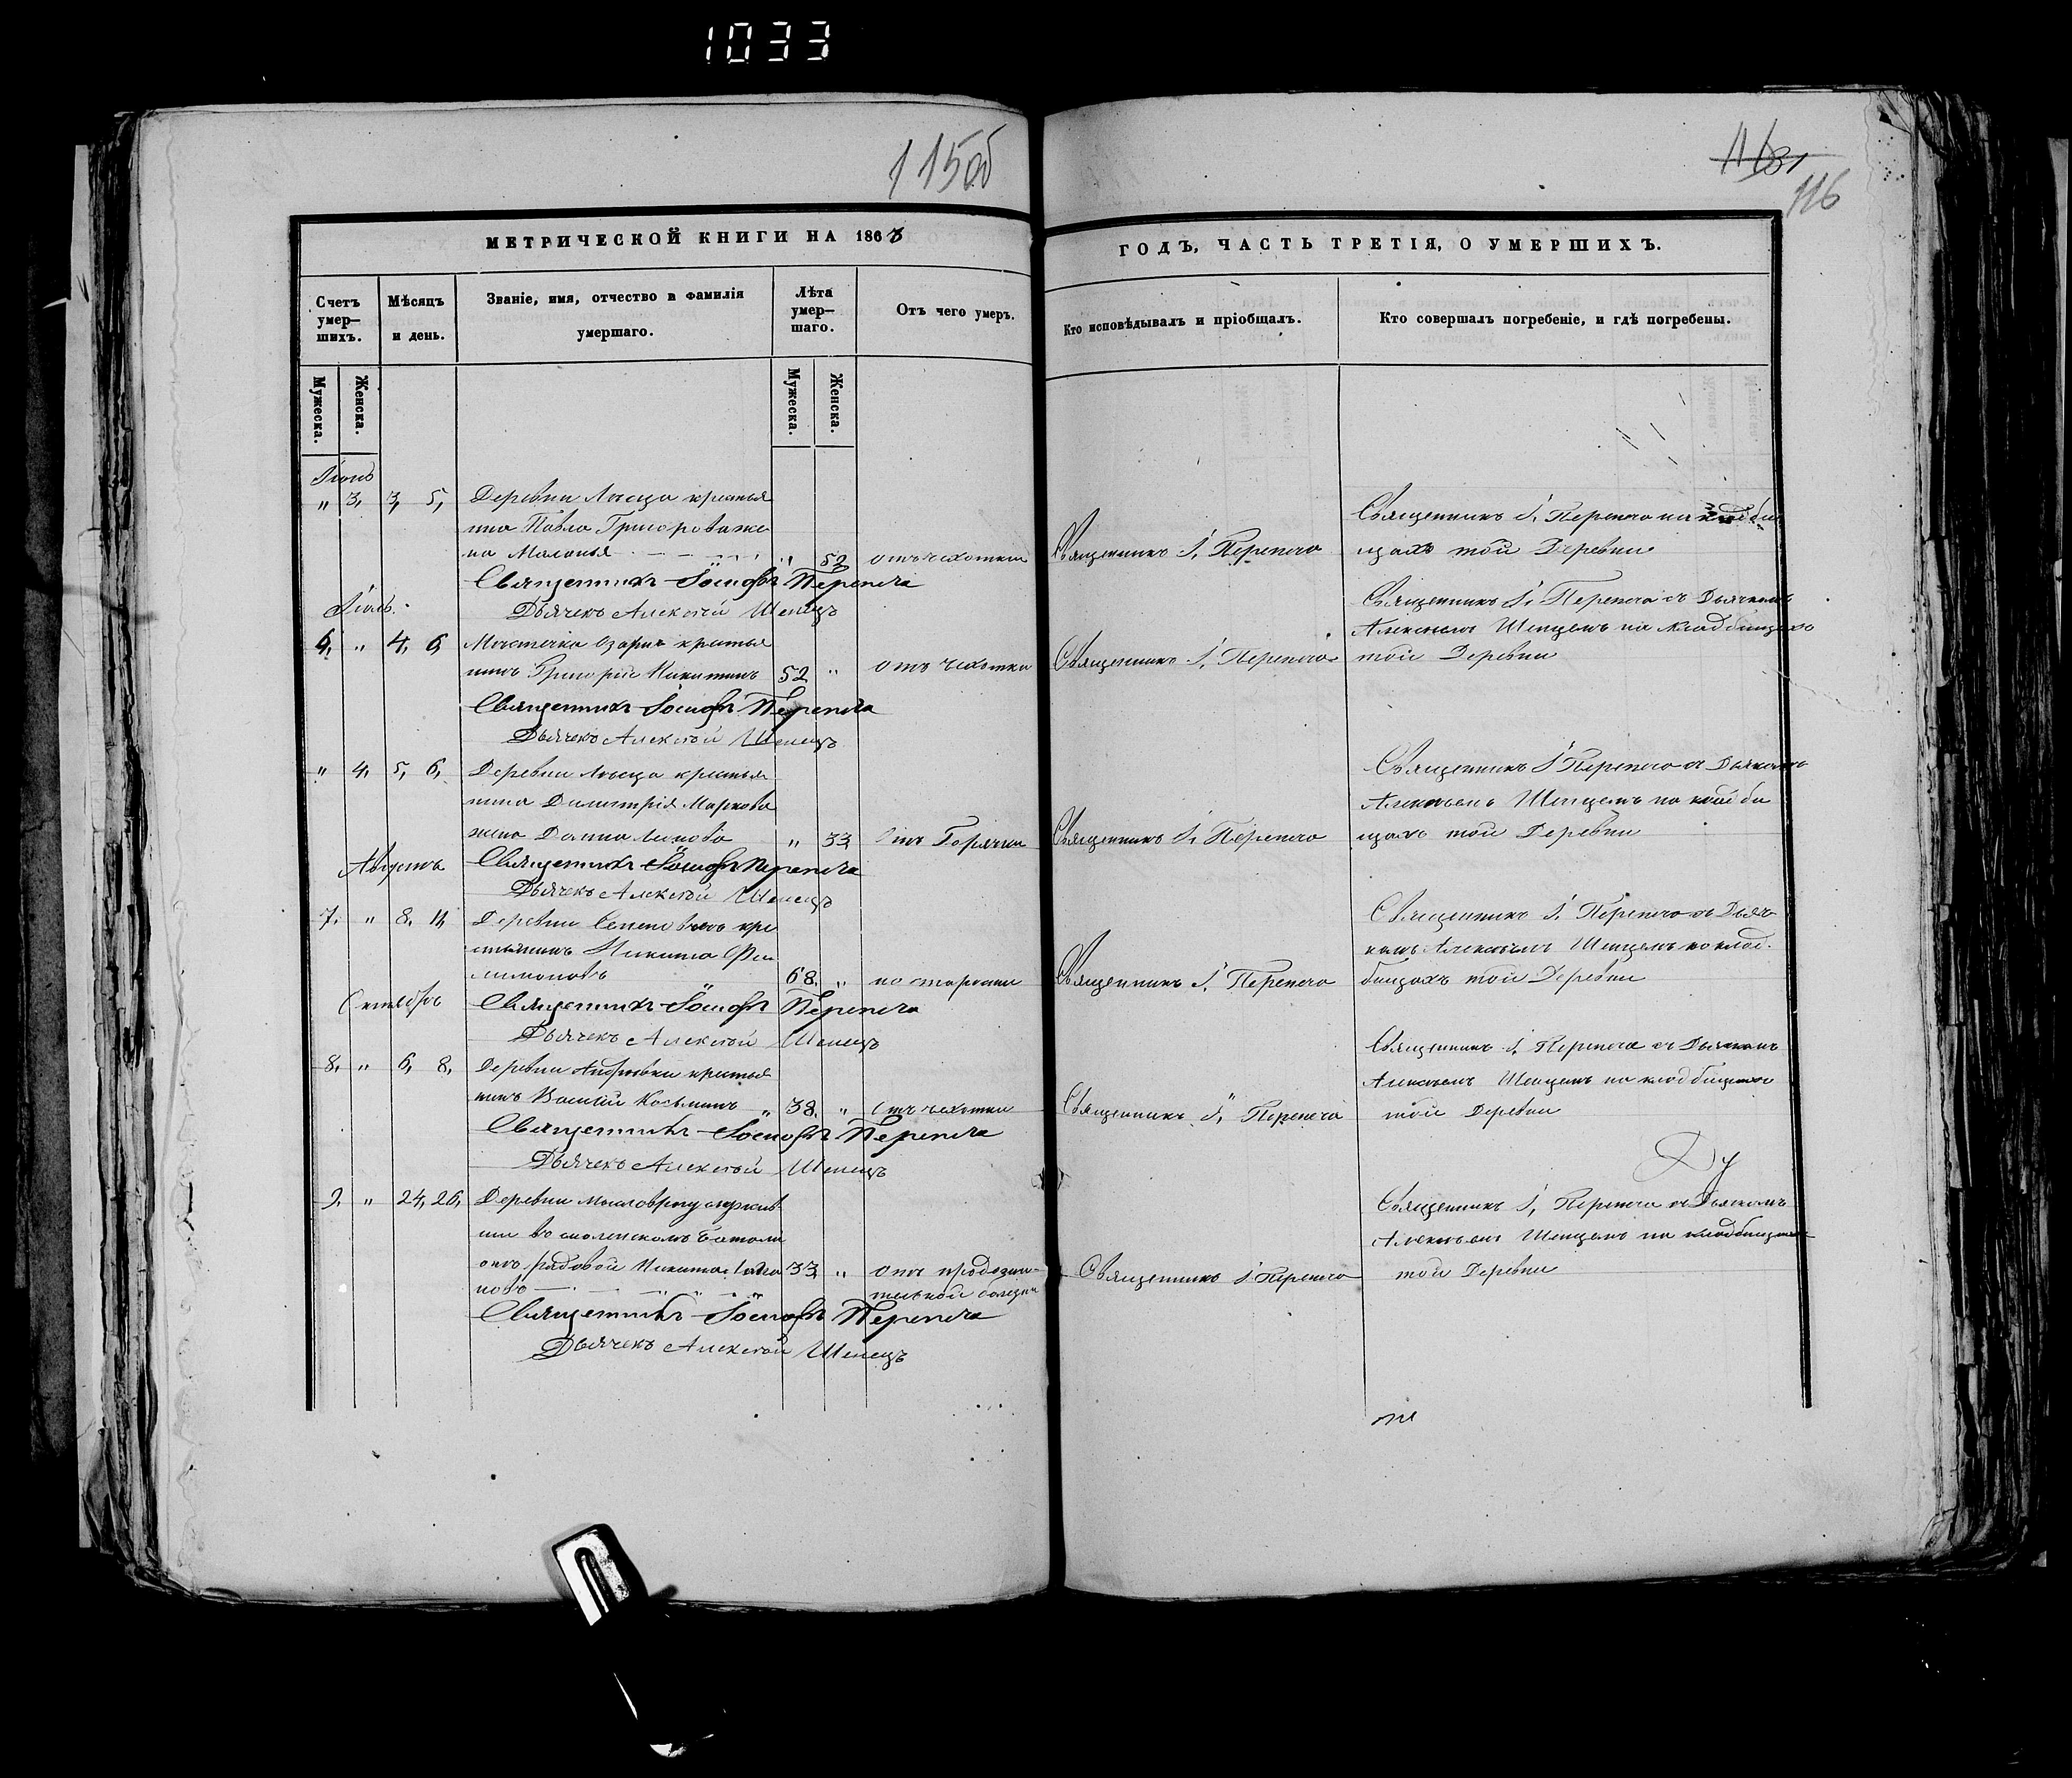 1033
115об
116
МЕТРИЧЕСКОЙ КНИГИ НА 186
ГОДЪ, ЧАСТЬ ТРЕТІЯ, О УМЕРШИХЪ.
Счетъ умер–шихъ.
Мѣсяцъ и день.
Званіе, имя, отчество и фамилія умершаго.
Лѣта умер–шаго.
Отъ чего умеръ.
Кто исповѣдывалъ и пріобщалъ.
Кто совершалъ погребеніе, и гдѣ погребены.
Мужеска.
Женска.
Мужеска.
Женска.
Іюнь
" 3, 3, 5, Деревни крестья
нина Павла Григорова же
на Маланья " 52 отъ чахотки Священникъ І. Перепеча
Священникъ І. Перепеча на кладби
щахъ той Деревни
Священникъ Іосифъ Перепеча
Дьячекъ Алексѣй Шепецъ
Іюль.
6, " 4, 6, Мѣстечка Озаричь крестья
нинъ Григорій Никитинъ 52 " отъ чахотки Священникъ І. Перепеча
Священникъ І. Перепеча съ Дьячкомъ
Алексѣемъ Шепцемъ на кладбищахъ
той Деревни
Священникъ Іосифъ Перепеча
Дьячекъ Алексѣй Шепецъ
" 4, 5, 6, Деревни крестья
нина Димитрія Маркова
жена 33, Отъ Горячки Священникъ І. Перепеча
Священникъ І. Перепеча съ Дьячкомъ
Алексѣемъ Шепцемъ на кладби
щахъ той Деревни
Августъ
Священникъ Іосифъ Перепеча
Дьячекъ Алексѣй Шепецъ
7, " 8, 11, Деревни кре
стьянинъ Никита Фи
лимоновъ 68, " по старости Священникъ І. Перепеча
Священникъ І. Перепеча съ Дьяч
комъ Алексѣемъ Шепцемъ на клад
бищахъ той Деревни
Октябрь
Священникъ Іосифъ Перепеча
Дьячекъ Алексѣй Шепецъ
8, " 6, 8, Деревни крестья
нинъ Василій Косьминъ " 38, " Отъ чахотки Священникъ І. Перепеча
Священникъ І. Перепеча съ Дьячкомъ
Алексѣемъ Шепцемъ на кладбищахъ
той Деревни
Священникъ Іосифъ Перепеча
Дьячекъ Алексѣй Шепецъ
9, " 24, 26, Деревни
въ смоленскомъ батали
онѣ рядовой Никита 33, " отъ продолжи
тельной болезни Священникъ І. Перепеча
Священникъ І. Перепеча съ Дьячкомъ
Алексѣемъ Шепцемъ на кладбищахъ
той Деревни
Священникъ Іосифъ Перепеча
Дьячекъ Алексѣй Шепецъ